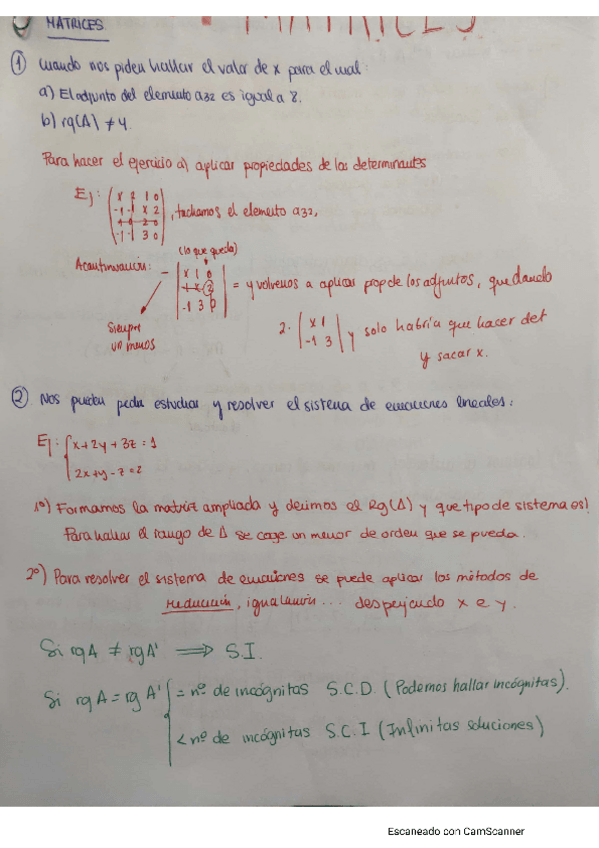 MATRICES
MATRICES
① Cuando nos piden hallar el valor de x para el cual:
a) El adjunto del elemento a32 es igual a 8.
b) rg(A) ≠ 4.
Para hacer el ejercicio a) aplicar propiedades de los determinantes
Ej: , tachamos el elemento a32,
-1 -1 x 2
-1 -1 3 0
(lo que queda)
A continuación: - | x 1 0 | = y volvemos a aplicar prop de los adjuntos, quedando
-1 3 0
Siempre un menos
2. | x 1 | y solo habría que hacer det
-1 3
y sacar x.
② Nos pueden pedir estudiar y resolver el sistema de ecuaciones lineales:
Ej: { x + 2y + 3z = 1
2x + y - z = 2
1º) Formamos la matriz ampliada y decimos el Rg(A) y que tipo de sistema es!
Para hallar el rango de A se coge un menor de orden que se pueda.
2º) Para resolver el sistema de ecuaciones se puede aplicar los métodos de
reducción, igualación... despejando x e y.
Si rg A ≠ rg A' ⟹ S.I.
Si rg A = rg A' { = nº de incógnitas S.C.D. (Podemos hallar incógnitas).
< nº de incógnitas S.C.I (Infinitas soluciones)
Escaneado con CamScanner